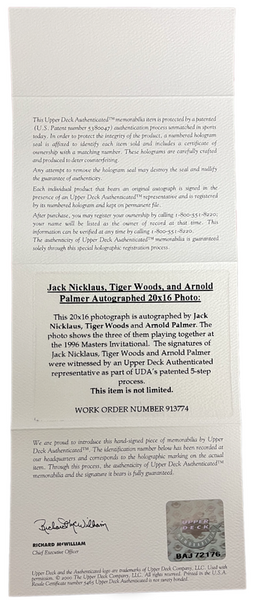 This Upper Deck Authenticated™ memorabilia item is protected by a patented
(U.S. Patent number 5380047) authentication process unmatched in sports
today. In order to protect the integrity of the product, a numbered hologram
seal is affixed to identify each item sold and includes a certificate of
ownership with a matching number. These holograms are carefully crafted
and produced to deter counterfeiting.
Any attempt to remove the hologram seal may destroy the seal and nullify
the guarantee of authenticity.
Each individual product that bears an original autograph is signed in the
presence of an Upper Deck Authenticated™ representative and is registered
by its numbered hologram and kept on permanent file.
After purchase, you may register your ownership by calling 1-800-551-8220;
your name will be listed as the owner of record at that time. This
information can be verified at any time by calling 1-800-551-8220.
The authenticity of Upper Deck Authenticated™ memorabilia is guaranteed
solely through this special holographic registration process.
Jack Nicklaus, Tiger Woods, and Arnold
Palmer Autographed 20x16 Photo:
This 20x16 photograph is autographed by Jack
Nicklaus, Tiger Woods and Arnold Palmer. The
photo shows the three of them playing together at
the 1996 Masters Invitational. The signatures of
Jack Nicklaus, Tiger Woods and Arnold Palmer
were witnessed by an Upper Deck Authenticated
representative as part of UDA's patented 5-step
process.
This item is not limited.
WORK ORDER NUMBER 913774
We are proud to introduce this hand-signed piece of memorabilia by Upper
Deck Authenticated™. The identification number below has been recorded at
our headquarters and corresponds to the holographic marking on the actual
item. Through this process, the authenticity of Upper Deck Authenticated™
memorabilia and the signature it bears is fully guaranteed.
Richard McWilliam
RICHARD McWILLIAM
Chief Executive Officer
UPPER DECK
BAJ72176
Upper Deck and the Authenticated logo are trademarks of the Upper Deck Company, LLC. Used with
permission. © 2000 The Upper Deck Company, LLC. All rights reserved. Printed in the U.S.A.
Resale certificate number 5465 Upper Deck Authenticated is not surety bonded.